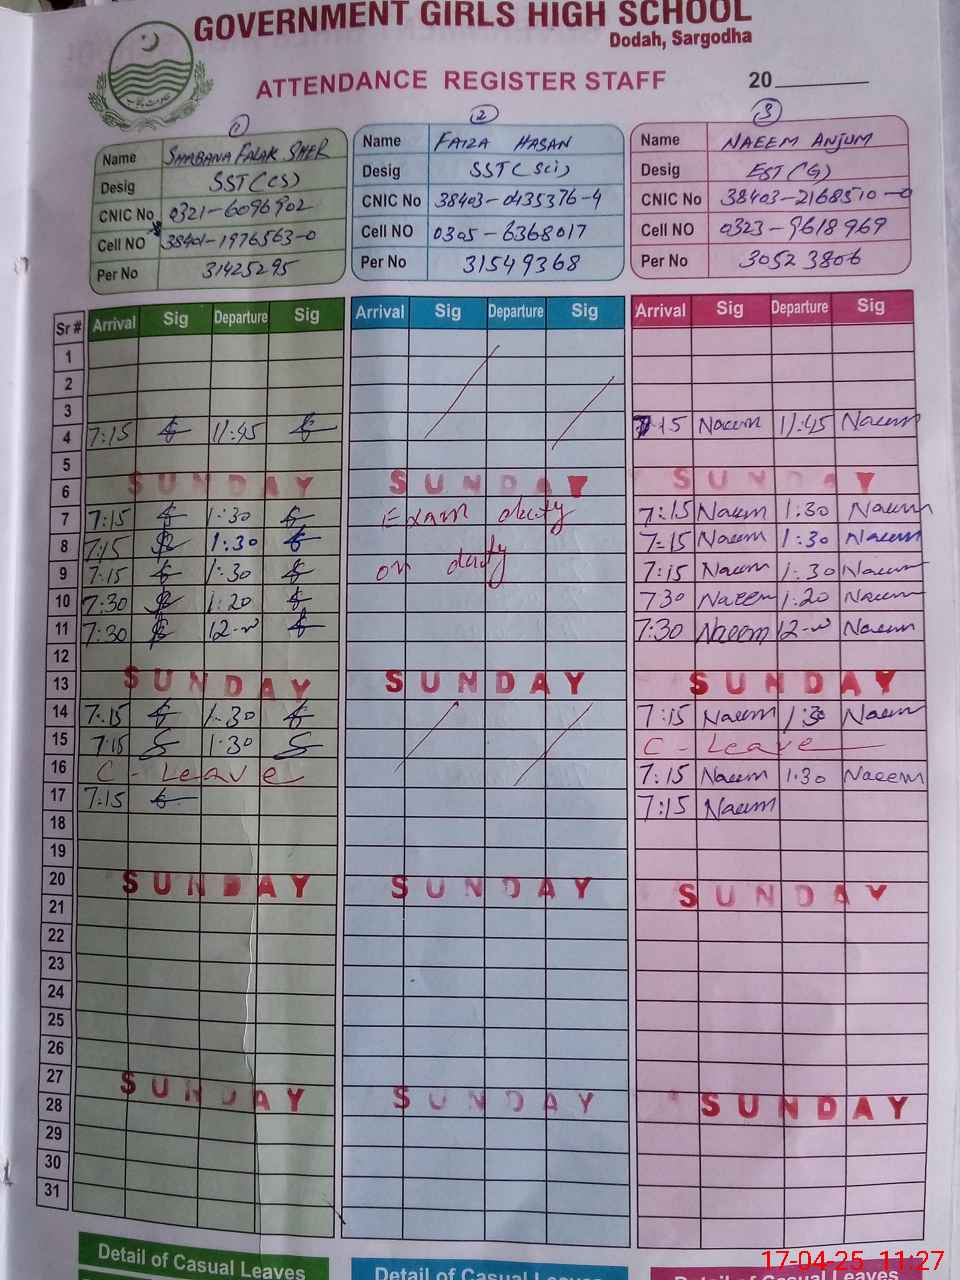 GOVERNMENT GIRLS HIGH SCHOOL
Dodah, Sargodha
ATTENDANCE REGISTER STAFF 20
1 2 3
Name SHABANA FALAK SHER Name FAIZA HASAN Name NAEEM ANJUM
Desig SST(CS) Desig SST(Sci) Desig EST(G)
CNIC No 0321-6096902 CNIC No 38403-0435376-4 CNIC No 38403-2168510-0
Cell NO 38401-1976563-0 Cell NO 0305-6368017 Cell NO 0323-9618969
Per No 31425295 Per No 31549368 Per No 30523806
Sr # Arrival Sig Departure Sig Arrival Sig Departure Sig Arrival Sig Departure Sig
1
2
3
4 7:15 11:45 7:15 Naeem 11:45 Naeem
5
6 SUNDAY SUNDAY SUNDAY
7 7:15 1:30 Exam duty 7:15 Naeem 1:30 Naeem
8 7:15 1:30 7:15 Naeem 1:30 Naeem
9 7:15 1:30 on duty 7:15 Naeem 1:30 Naeem
10 7:30 1:20 7:30 Naeem 1:20 Naeem
11 7:30 7:30 Naeem Naeem
12
13 SUNDAY SUNDAY SUNDAY
14 7:15 1:30 7:15 Naeem 1:30 Naeem
15 7:15 1:30 C-Leave
16 C-Leave 7:15 Naeem 1:30 Naeem
17 7:15 7:15 Naeem
18
19
20 SUNDAY SUNDAY SUNDAY
21
22
23
24
25
26
27 SUNDAY SUNDAY SUNDAY
28
29
30
31
Detail of Casual Leaves Detail of Casual Leaves Detail of Casual Leaves
17-04-25 11:27